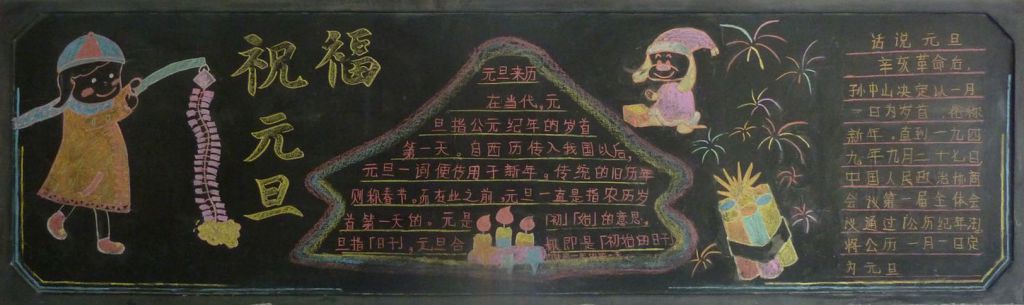 祝福
元旦
元旦来历
在当代,元
旦指公元纪年的岁首
第一天。自西历传入我国以后,
元旦一词便专用于新年。传统的旧历年
则称春节。而在此之前,元旦一直是指农历岁
首第一天的。元是「初」「始」的意思,
旦指「日子」,元旦合 即是「初始的日子」
话说元旦
辛亥革命后,
孙中山决定以一月
一日为岁首
新年,直到一九四
九年九月二十七日
中国人民政治协商
会议第一届全体会
议通过「公历纪年法」
将公历一月一日定
为元旦